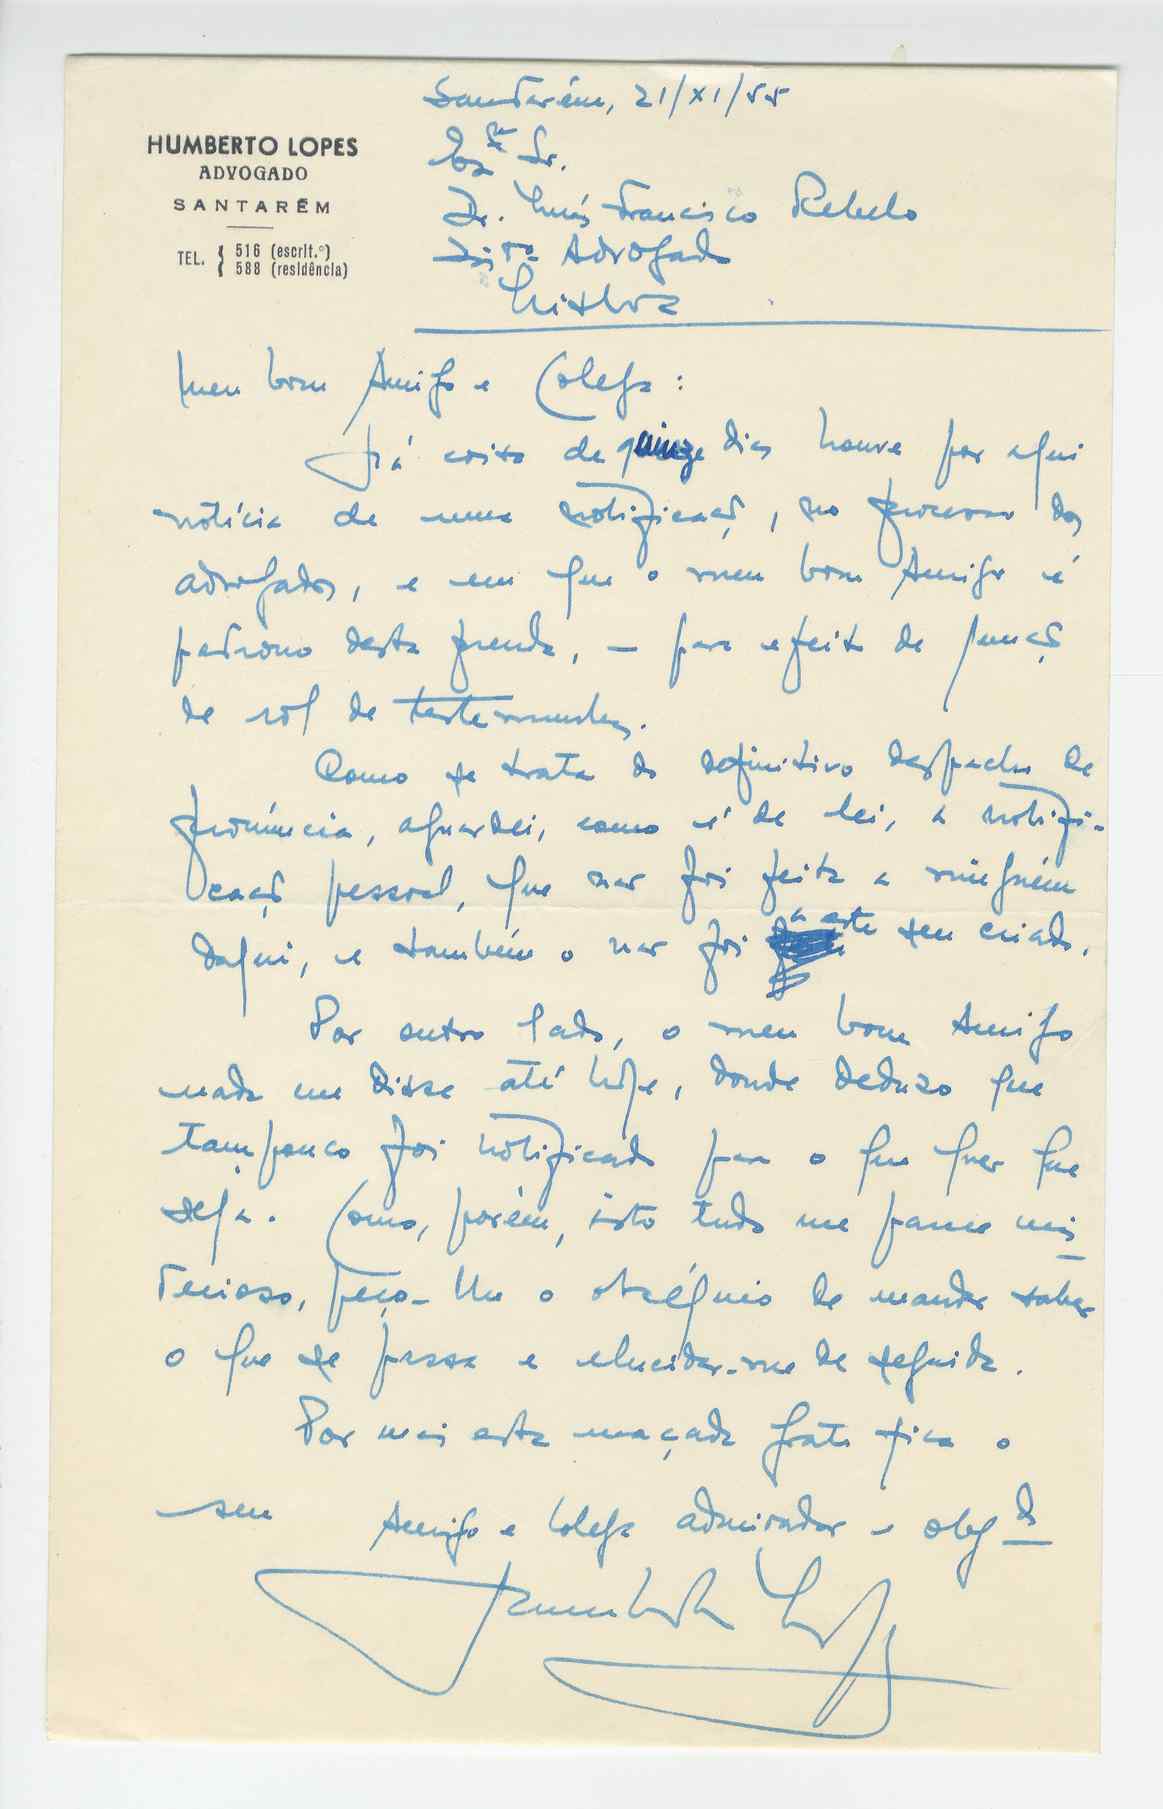 Santarém, 21/XI/55
HUMBERTO LOPES
ADVOGADO
SANTARÉM
TEL. { 516 (escrit.º)
588 (residência)
Exº Sr.
Dr. Luís Francisco Rebelo
Advogado
Lisboa
Meu bom Amigo e Colega:
Há coisa de quinze dias houve por aqui
notícia de uma notificação, no processo dos
advogados, e em que o meu bom Amigo é
patrono desta prenda, — para efeito de junção
de rol de testemunhas.
Como se trata do definitivo despacho de
pronúncia, aguardei, como é de lei, a notifi-
cação pessoal, que não foi feita a ninguém
daqui, e também o não foi a este seu criado.
Por outro lado, o meu bom Amigo
nada me disse até hoje, donde deduzo que
tampouco foi notificado para o que quer que
seja. Como, porém, isto tudo me parece mis-
terioso, peço-lhe o obséquio de mandar saber
o que se passa e elucidar-me de seguida.
Por mais esta maçada grato fica o
seu Amigo e Colega admirador e obgdo
Humberto Lopes